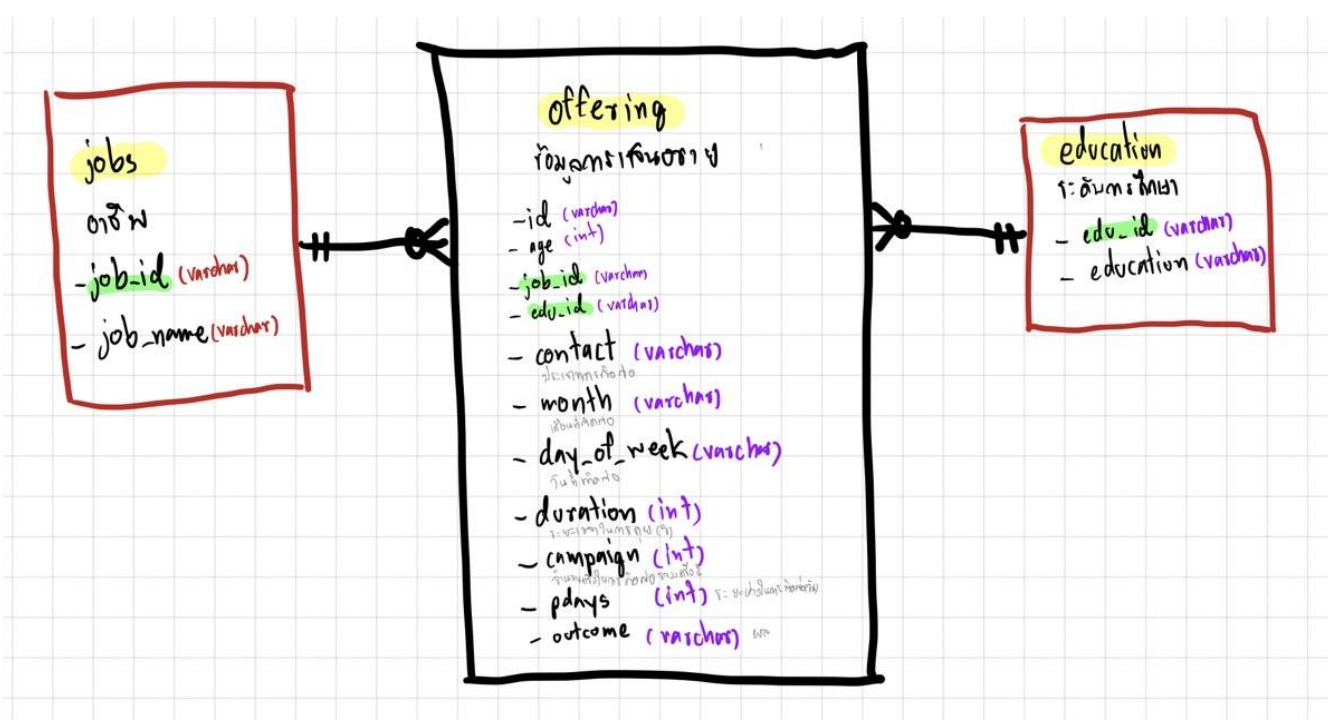 jobs
อาชีพ
- job_id (varchar)
- job_name (varchar)
offering
ข้อมูลการเสนอขาย
- id (varchar)
- age (int)
- job_id (varchar)
- edu_id (varchar)
- contact (varchar)
ประเภทการติดต่อ
- month (varchar)
เดือนที่ติดต่อ
- day_of_week (varchar)
วันที่ติดต่อ
- duration (int)
ระยะเวลาในการคุย (วิ)
- campaign (int)
- pdays (int)
- outcome (varchar) ผล
education
ระดับการศึกษา
- edu_id (varchar)
- education (varchar)